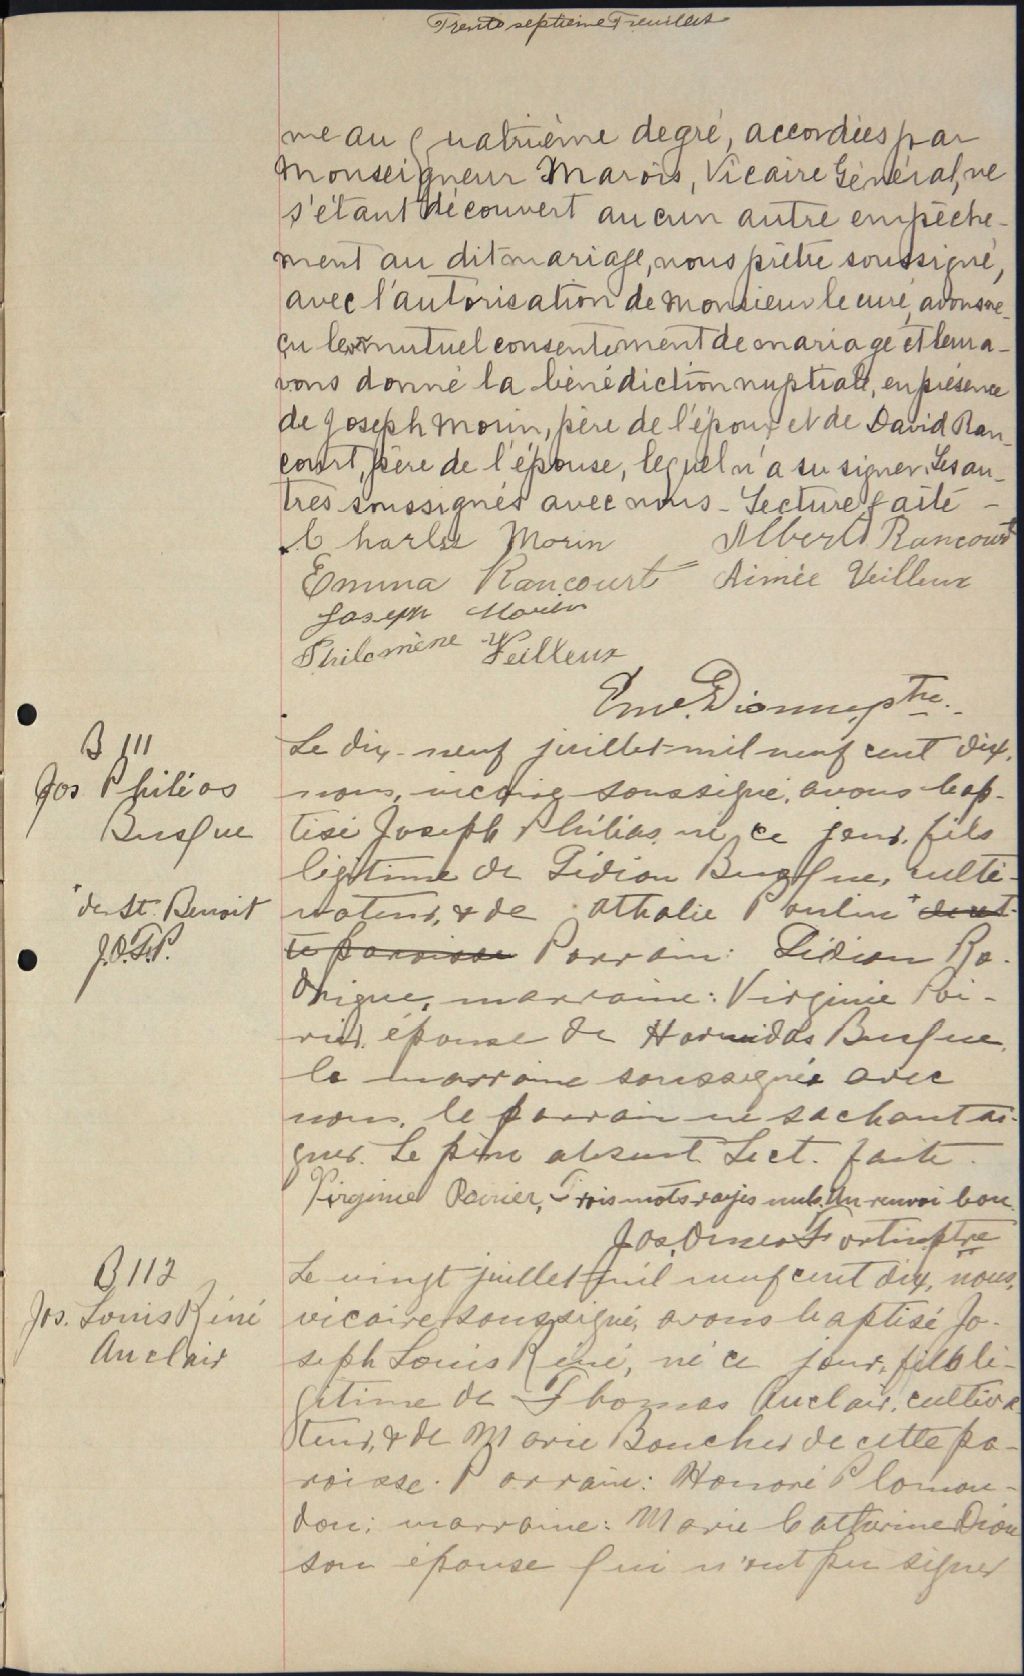 Trente septième Feuillet
me au quatrième degré, accordées par
Monseigneur Marois, Vicaire Général, ne
s'étant découvert aucun autre empêche-
ment au dit mariage, nous prêtre soussigné,
avec l'autorisation de Monsieur le curé, avons re-
çu leur mutuel consentement de mariage et leur a-
vons donné la bénédiction nuptiale, en présence
de Joseph Morin, père de l'époux et de David Ran-
court, père de l'épouse, lequel n'a su signer. Les au-
tres soussignés avec nous - Lecture faite -
Charlie Morin Albert Rancourt
Emma Rancourt Aimée Veilleux
Joseph Morin
Philomène Veilleux
Em. Dionne ptre.
B 111
Jos Philéas
Busque
Le dix-neuf juillet mil neuf cent dix,
nous, vicaire soussigné, avons bap-
tisé Joseph Philias né ce jour, fils
légitime de Gédéon Busque, culti-
vateur, & de Athalie Poulin + de cet-
te paroisse Parrain: Gédéon Ro-
drigue, marraine: Virginie Poi-
rier, épouse de Hormidas Busque,
la marraine soussignée avec
nous, le parrain ne sachant si-
gner. Le père absent Lect. faite.
+ de St. Benoit
J.O.F.P.
Virginie Poirier, Trois mots rayés nuls. Un renvoi bon.
Jos. Omer Fortin ptre
B 112
Jos. Louis Réné
Auclair
Le vingt juillet mil neuf cent dix, nous,
vicaire soussigné, avons baptisé Jo-
seph Louis Réné, né ce jour, fils lé-
gitime de Thomas Auclair, cultiva-
teur, & de Marie Boucher de cette pa-
roisse. Parrain: Honoré Plamon-
don; marraine: Marie Catherine Dion
son épouse qui n'ont pu signer